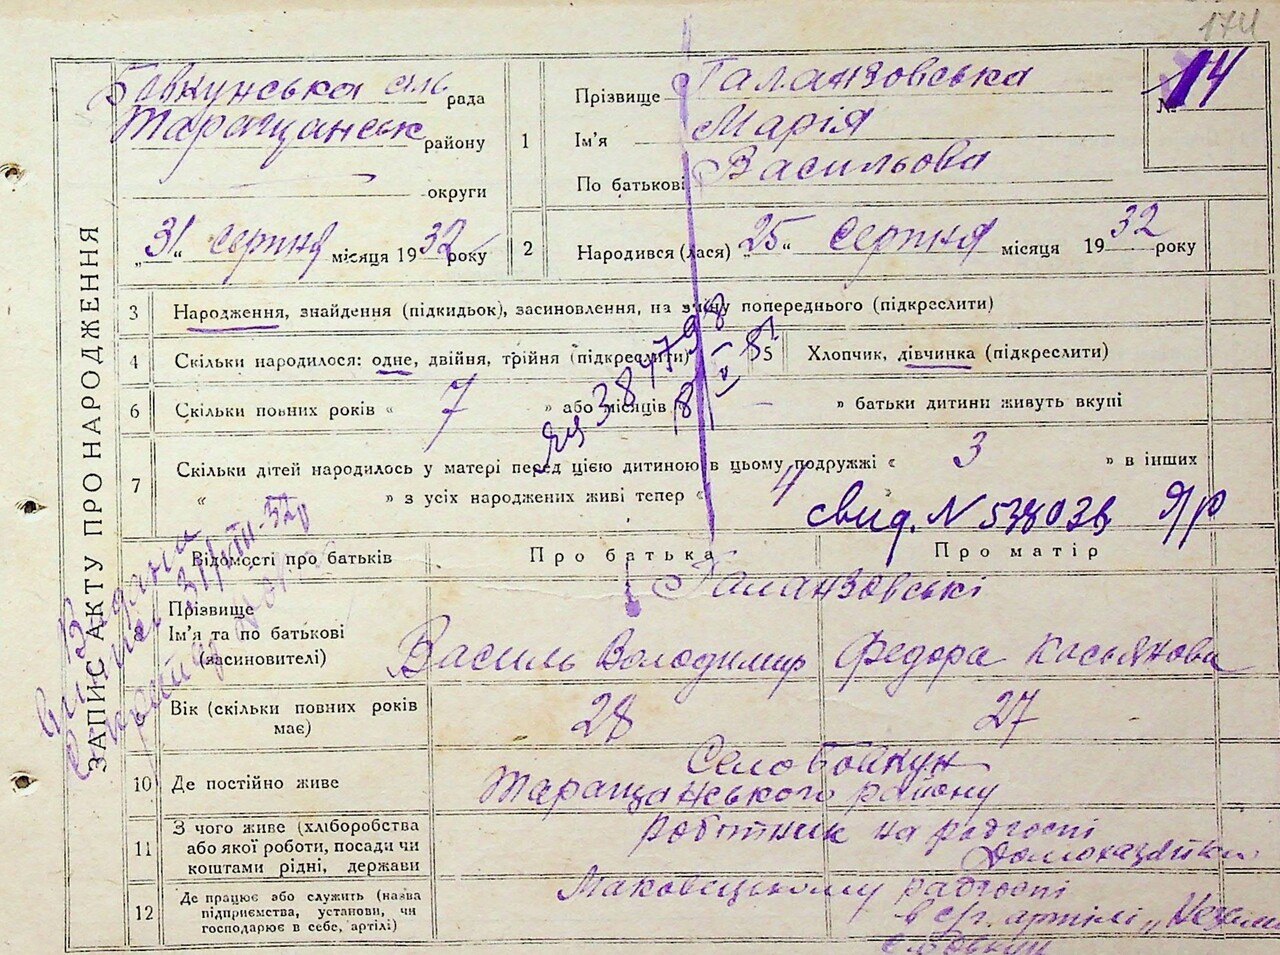 174
ЗАПИС АКТУ ПРО НАРОДЖЕННЯ
Бовкунська сіль рада
Таращанськ району
округи
„31“ серпня місяця 1932 року
№ 14
1 Прізвище Галанзовська
Ім'я Марія
По батькові Васильова
2 Народився (лася) „25“ серпня місяця 1932 року
3 Народження, знайдення (підкидьок), засиновлення, на зміну попереднього (підкреслити)
4 Скільки народилося: одне, двійня, трійня (підкреслити)
5 Хлопчик, дівчинка (підкреслити)
6 Скільки повних років « 7 » або місяців « — » батьки дитини живуть вкупі
7 Скільки дітей народилось у матері перед цією дитиною в цьому подружжі « 3 » в інших
« » з усіх народжених живі тепер « 4 »
свид. N 538036
Видана
Відомості про батьків Про батька Про матір
8 Прізвище Галанзовські
Ім'я та по батькові Василь Володимир Федора Касьянова
(засиновителі)
Вік (скільки повних років 28 27
має)
10 Де постійно живе Село Бовкун
Таращанського району
11 З чого живе (хліборобства робітник на радгоспі
або якої роботи, посади чи Домохазяйка
коштами рідні, держави
12 Де працює або служить (назва Маковецькому радгоспі
підприємства, установи, чи в с/г. артілі
господарює в себе, артілі)